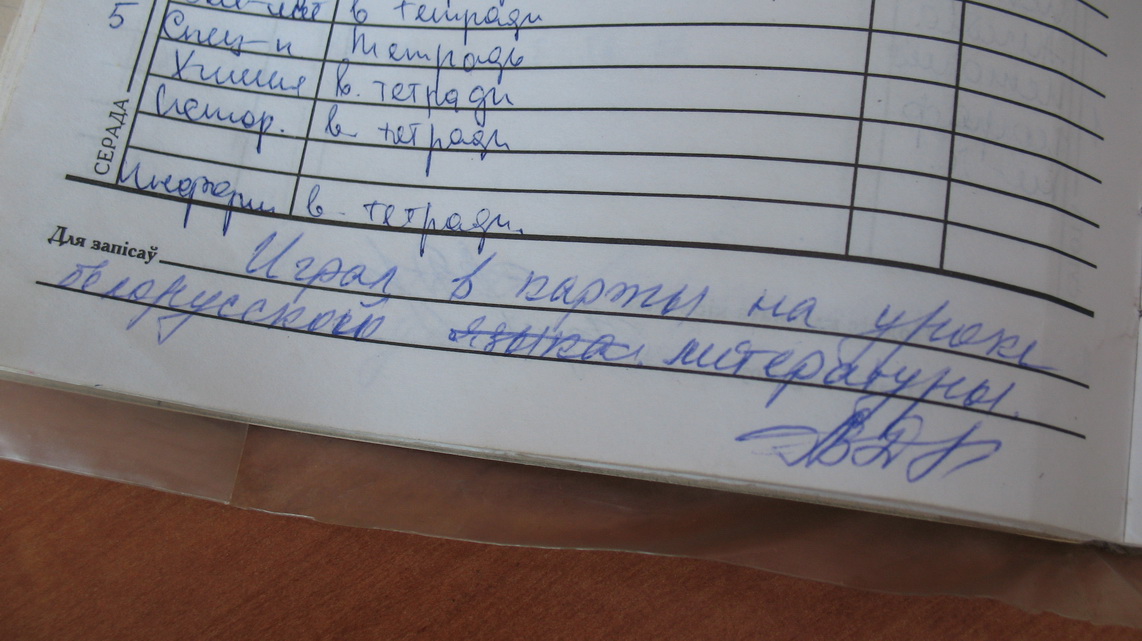 в тетради
5
Спец-к тетрадь
Химия в. тетради
Истор. в тетради
СЕРАДА
Информ в тетради.
Для запісаў Играл в карты на уроке
белорусской языка литературы.